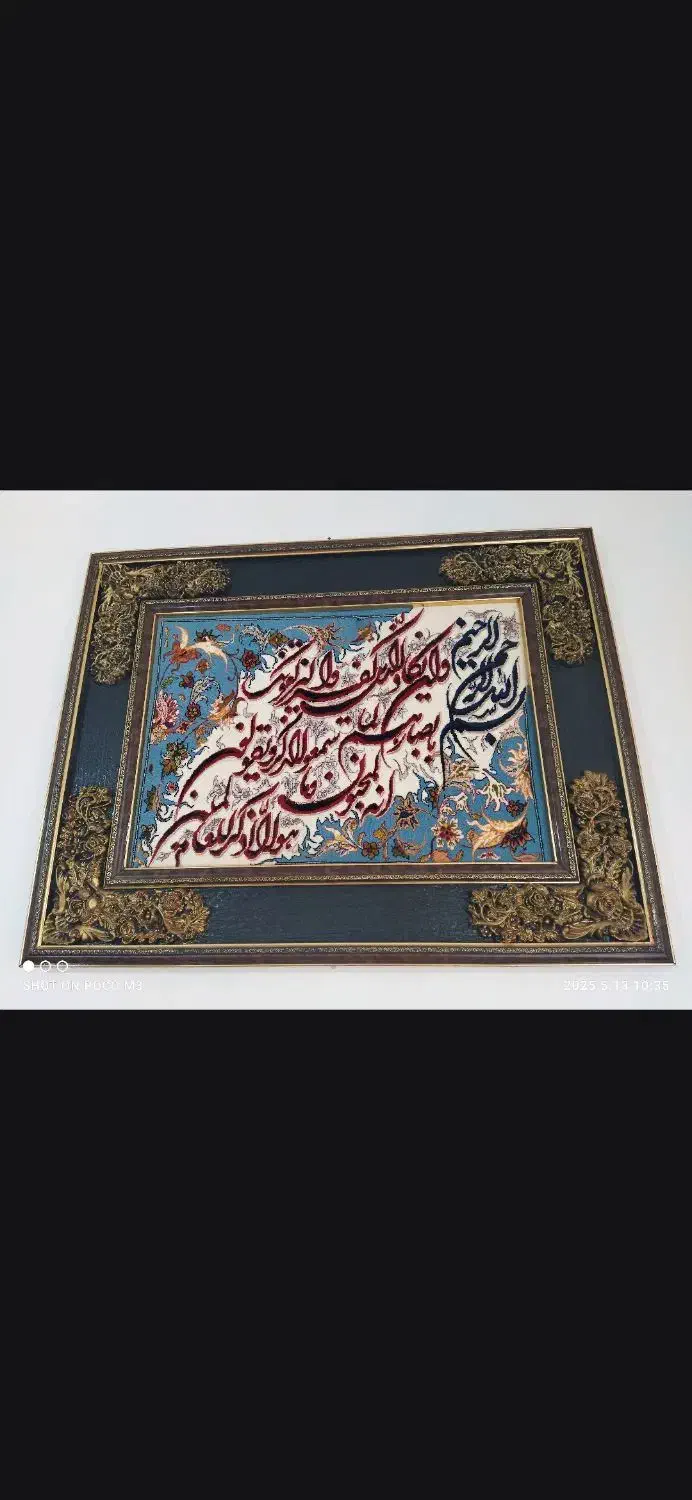 بسم الله الرحمن الرحیم
وان یکاد الذین کفروا لیزلقونک
بابصارهم لما سمعوا الذکر و یقولون
انه لمجنون و ما
هو الا ذکر للعالمین
SHOT ON POCO M3
2025.5.13 10:35